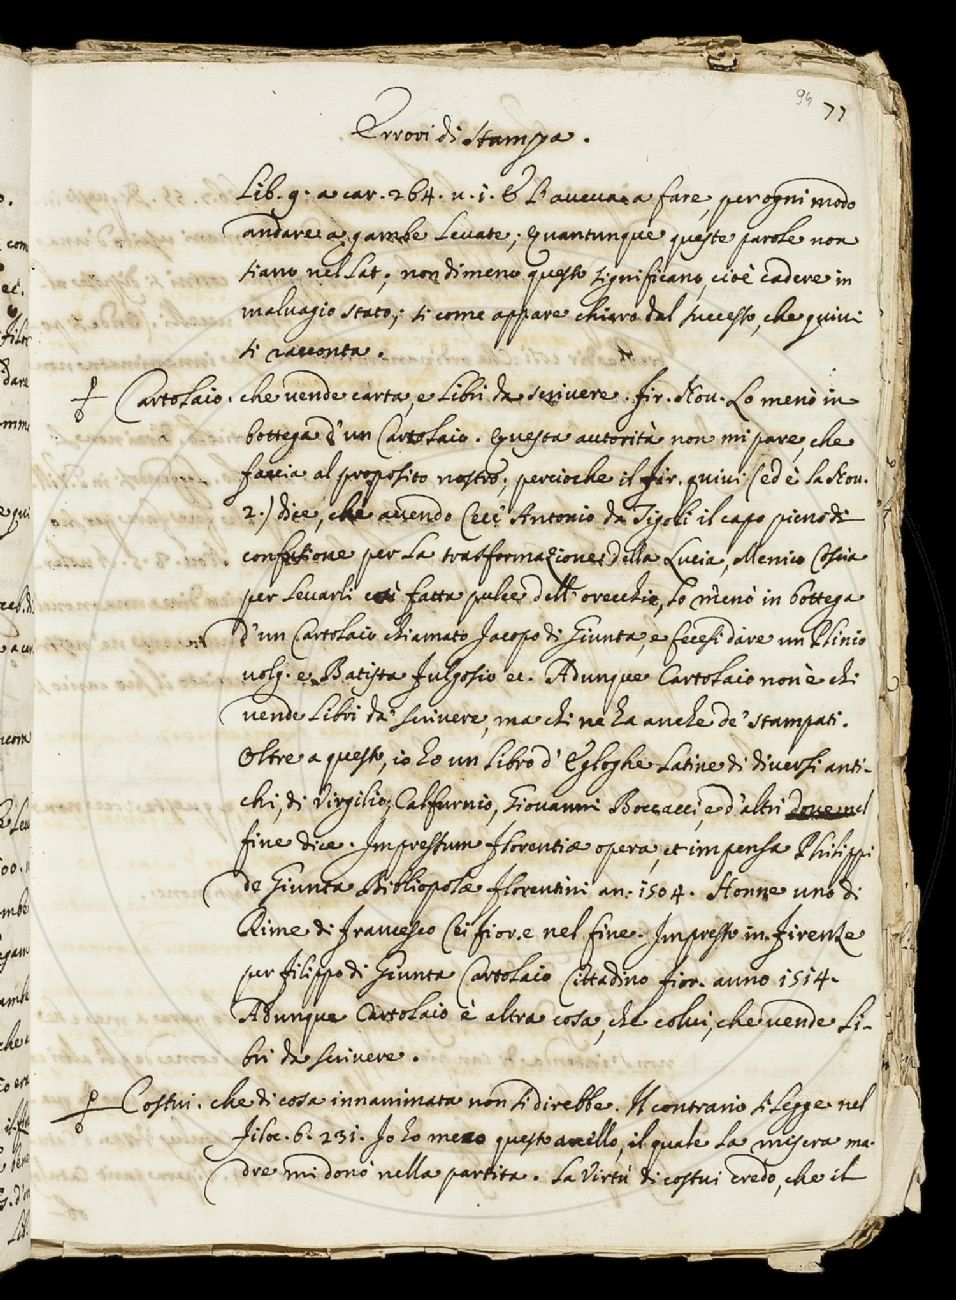 94 77
Errori di stampa.
Lib. 9. a car. 264. n. i. E l'aueua a fare, per ogni modo
andare a gambe leuate; Quantunque queste parole non
siano nel Lat; nondimeno questo significano, cioè cadere in
maluagio stato; si come appare chiaro dal successo, che quiui
si racconta.
Cartolaio. che uende carta, e libri da scriuere. fir. Nou. Lo menò in
bottega d'un Cartolaio. Questa autorità non mi pare, che
faccia al proposito nostro; percioche il Fir. quiui (ed è la Nou.
2.) dice, che auendo Ceci Antonio da Tigoli il capo pieno di
confusione per la trasformazione della Lucia, Menico Coscia
per leuarli così fatta pulce dell'orecchie, lo menò in bottega
d'un Cartolaio chiamato Jacopo di Giunta, e fecesi dare un Plinio
uolg. e Batista Fulgosio ec. Adunque Cartolaio non è chi
uende libri da scriuere, ma chi ne ha anche de' stampati.
Oltre a questo, io ho un libro d'Egloghe Latine di diuersi anti-
chi, di Virgilio, Calfurnio, Giouanni Boccacci, e d'altri doue nel
fine dice. Impressum Florentiæ opera, et impensa Philippi
de Giunta Bibliopolæ Florentini an. 1504. Honne uno di
Rime di Francesco Cei fior. e nel fine. Impresso in Firenze
per Filippo di Giunta Cartolaio Cittadino fior. anno 1514.
Adunque Cartolaio è altra cosa, che colui, che uende Li-
bri da scriuere.
Costui. che di cosa innanimata non si direbbe. Il contrario si legge nel
Filoc. 6. 231. Io ho meco questo anello, il quale la misera ma-
dre mi donò nella partita. La Virtù di costui credo, che il